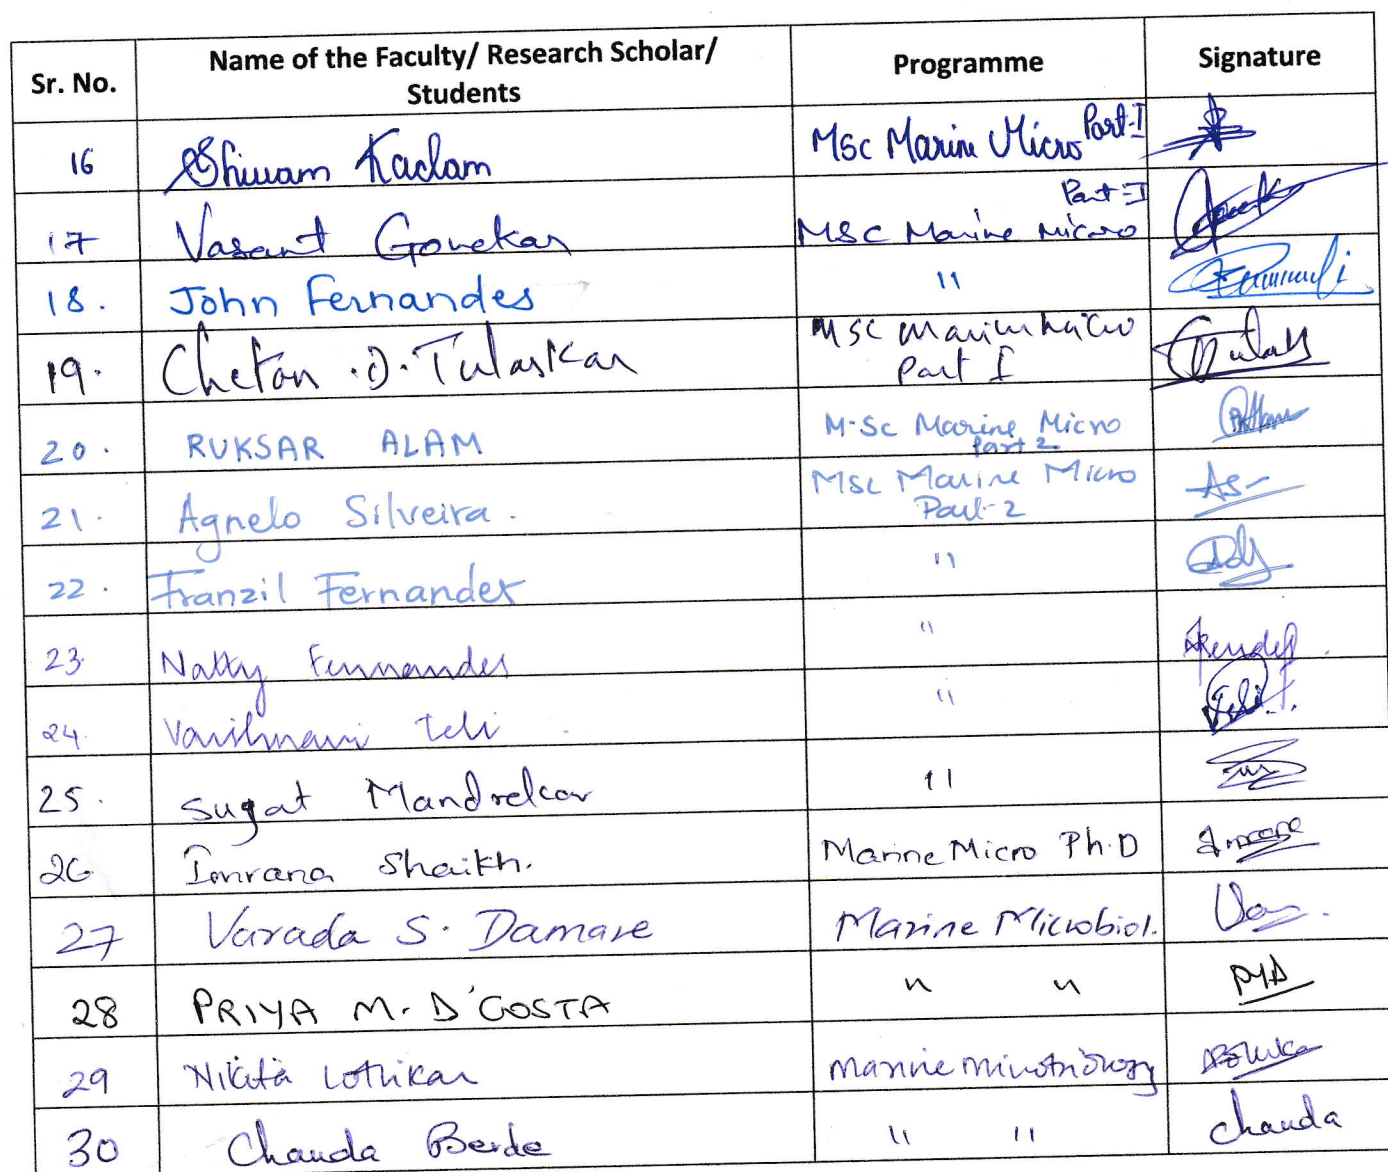 Sr. No. Name of the Faculty/ Research Scholar/ Students Programme Signature
16 Shivam Kadam MSc Marine Micro Part-I
17 Vasant Gonekar MSc Marine Micro Part-I
18. John Fernandes "
19. Chetan .D. Tulaskar MSc Marine Micro Part I
20. RUKSAR ALAM M.Sc Marine Micro Part 2
21. Agnelo Silveira. MSc Marine Micro Part-2 AS
22. Franzil Fernandes "
23. Natty Fernandes "
24. Teli " Teli
25. Sugat Mandrekar "
26 Imrana Shaikh. Marine Micro Ph.D
27 Varada S. Damare Marine Microbiol.
28 PRIYA M. D'COSTA " "
29 Nikita Lotlikar Marine Microbiology
30 Chanda Berde " " Chanda